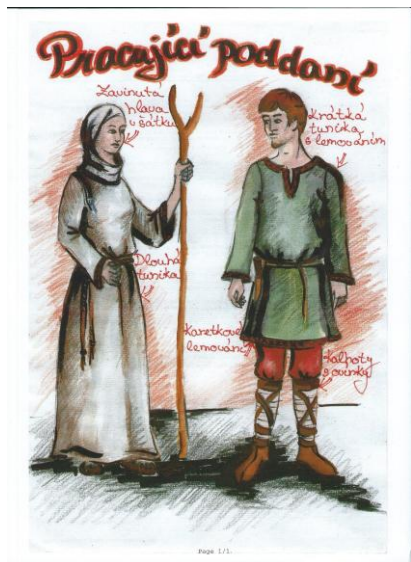 Pracující poddaní
Zavinutá
hlava
v šátku
Krátká
tunika
s lemováním
Dlouhá
tunika
Karetkové
lemování
Kalhoty
s ovinky
Page 1/1.